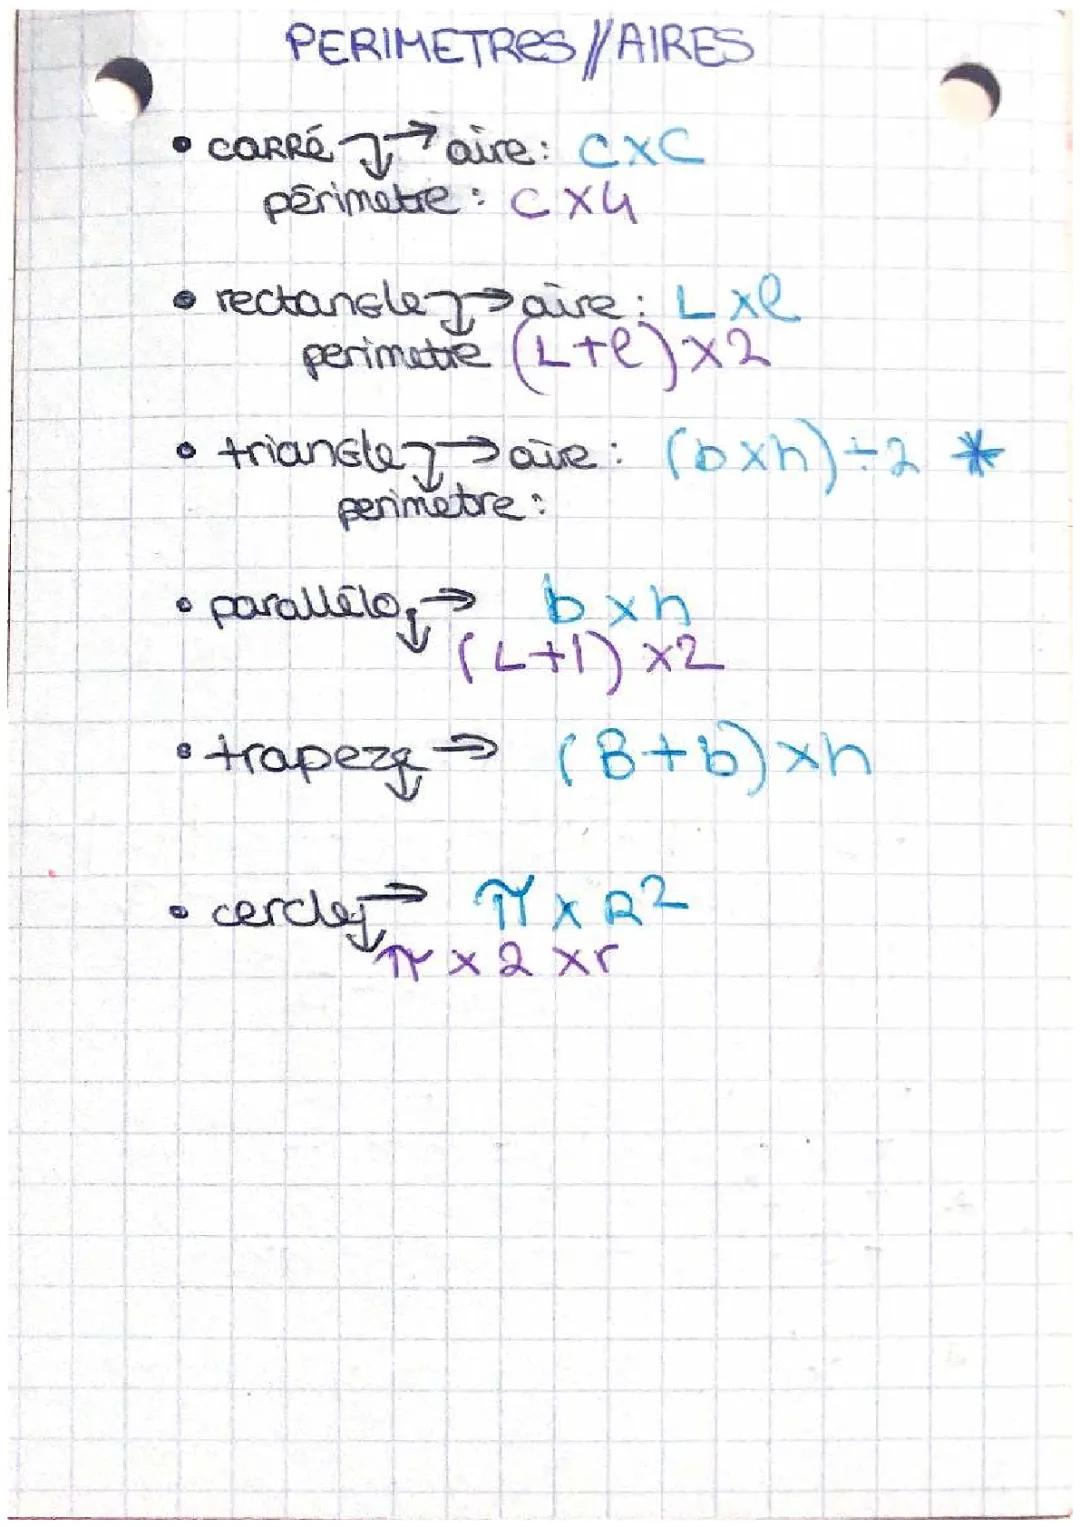 PERIMETRES // AIRES
• CARRÉ → aire : C×C
périmetre : C×4
• rectangle → aire : L×l
perimetre (L+l)×2
• triangle → aire : (b×h)÷2 *
perimetre :
• parallélo → b×h
↓ (L+l)×2
• trapeze → (B+b)×h
↓
• cercle → π×R²
↓ π×2×r